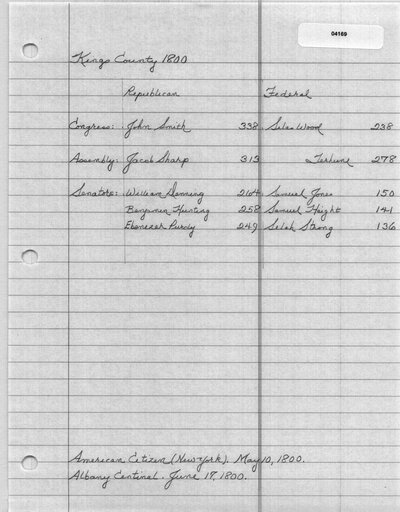 04169
Kings County 1800
Republican Federal
Congress: John Smith 338 Silas Wood 238
Assembly: Jacob Sharp 313 Terhune 278
Senators: William Denning 264 Samuel Jones 150
Benjamin Hunting 258 Samuel Haight 141
Ebenezer Purdy 249 Selah Strong 136
American Citizen (New York). May 10, 1800.
Albany Centinel. June 17, 1800.